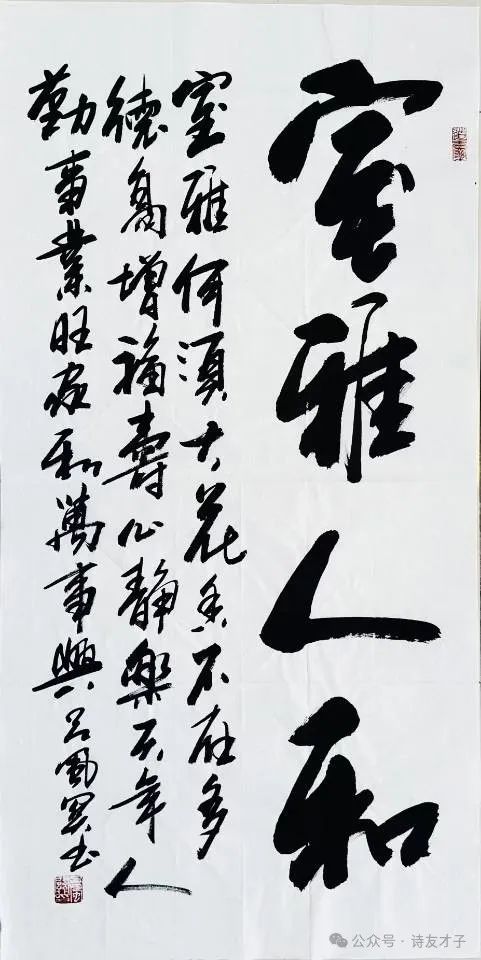 室雅人和
室雅何須大花香不在多
德高增福壽心静樂天年人
勤事業旺家和萬事興吕鳳书
公众号 · 诗友才子